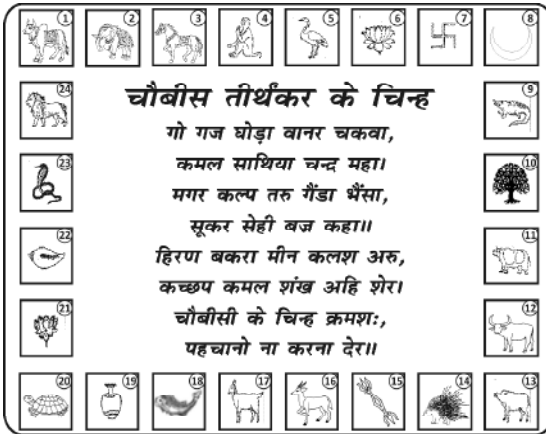 ① ② ③ ④ ⑤ ⑥ ⑦ ⑧
㉔ ⑨
㉓ ⑩
㉒ ⑪
㉑ ⑫
⑳ ⑲ ⑱ ⑰ ⑯ ⑮ ⑭ ⑬
चौबीस तीर्थंकर के चिन्ह
गो गज घोड़ा वानर चकवा,
कमल साथिया चन्द्र महा।
मगर कल्प तरु गैंडा भैंसा,
सूकर सेही बज्र कहा॥
हिरण बकरा मीन कलश अरु,
कच्छप कमल शंख अहि शेर।
चौबीसी के चिन्ह क्रमशः,
पहचानो ना करना देर॥